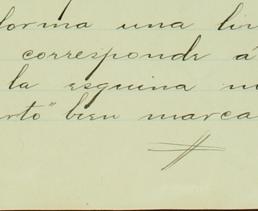 forma una lin
corresponde á
la esquina
arto" bien marca